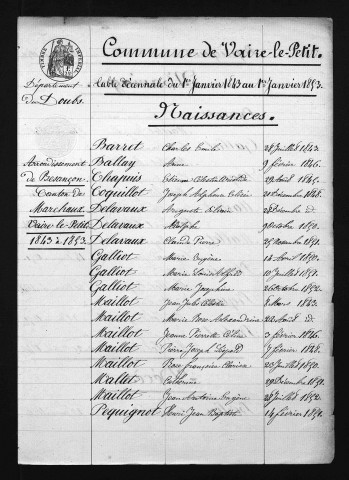 Commune de Vaire-le-Petit.
Table décennale du 1er Janvier 1843 au 1er Janvier 1853.
Département
du Doubs.
Naissances.
Arrondissement
de Besançon
Canton de
Marchaux
Vaire-le-Petit
1843 à 1853
Barret Charles Emile 28 Juillet 1843.
Ballay Anne 9 février 1846.
Chapuis Etienne 29 Avril 1845.
Coquillot Joseph Alphonse 20 Décembre 1848.
Delavaux Auguste 28 Décembre id
Delavaux Adolphe 9 Octobre 1850.
Delavaux Claude Pierre 25 Novembre 1851.
Galliot Marie Eugène 14 Avril 1850.
Galliot Marie 10 Juillet 1851.
Galliot Marie Joséphine 26 Octobre 1852.
Maillot Jean Jules 8 Mars 1843.
Maillot Marie Rose Alexandrine 22 Août id
Maillot Jeanne Pierrette 3 février 1846.
Maillot Pierre Joseph Léopold 7 février 1848.
Maillot Rose Françoise 23 Juillet 1850.
Mallet Catherine 29 Décembre 1850.
Maillot Jean Antoine Eugène 28 Juillet 1852.
Pequignot Henri Jean Baptiste 14 février 1850.